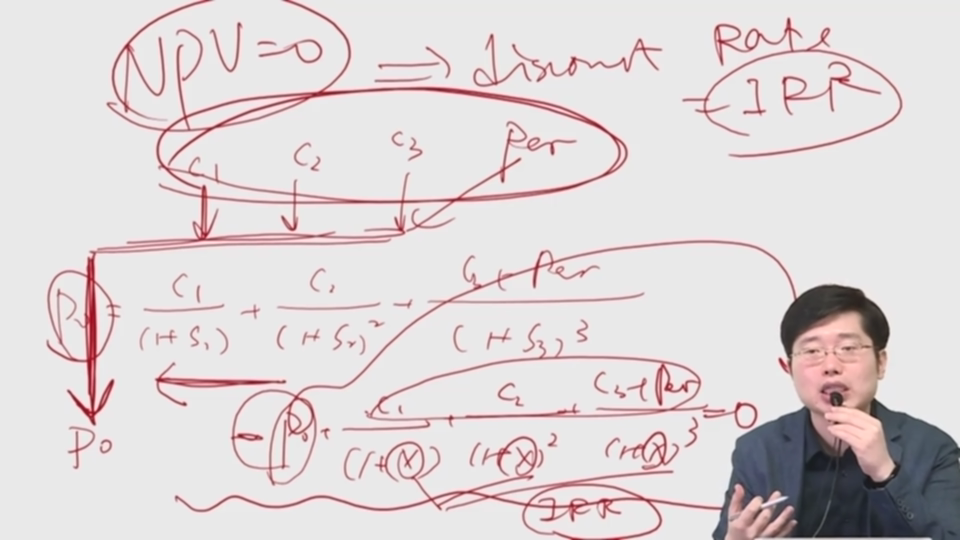 NPV=0 ⇒ discount Rate
= IRR
C1 C2 C3 Par
P0 = C1/(1+S1) + C2/(1+S2)^2 + (C3+Par)/(1+S3)^3
P0
-P0 + C1/(1+(x)) + C2/(1+(x))^2 + (C3+Par)/(1+(x))^3 = 0
IRR